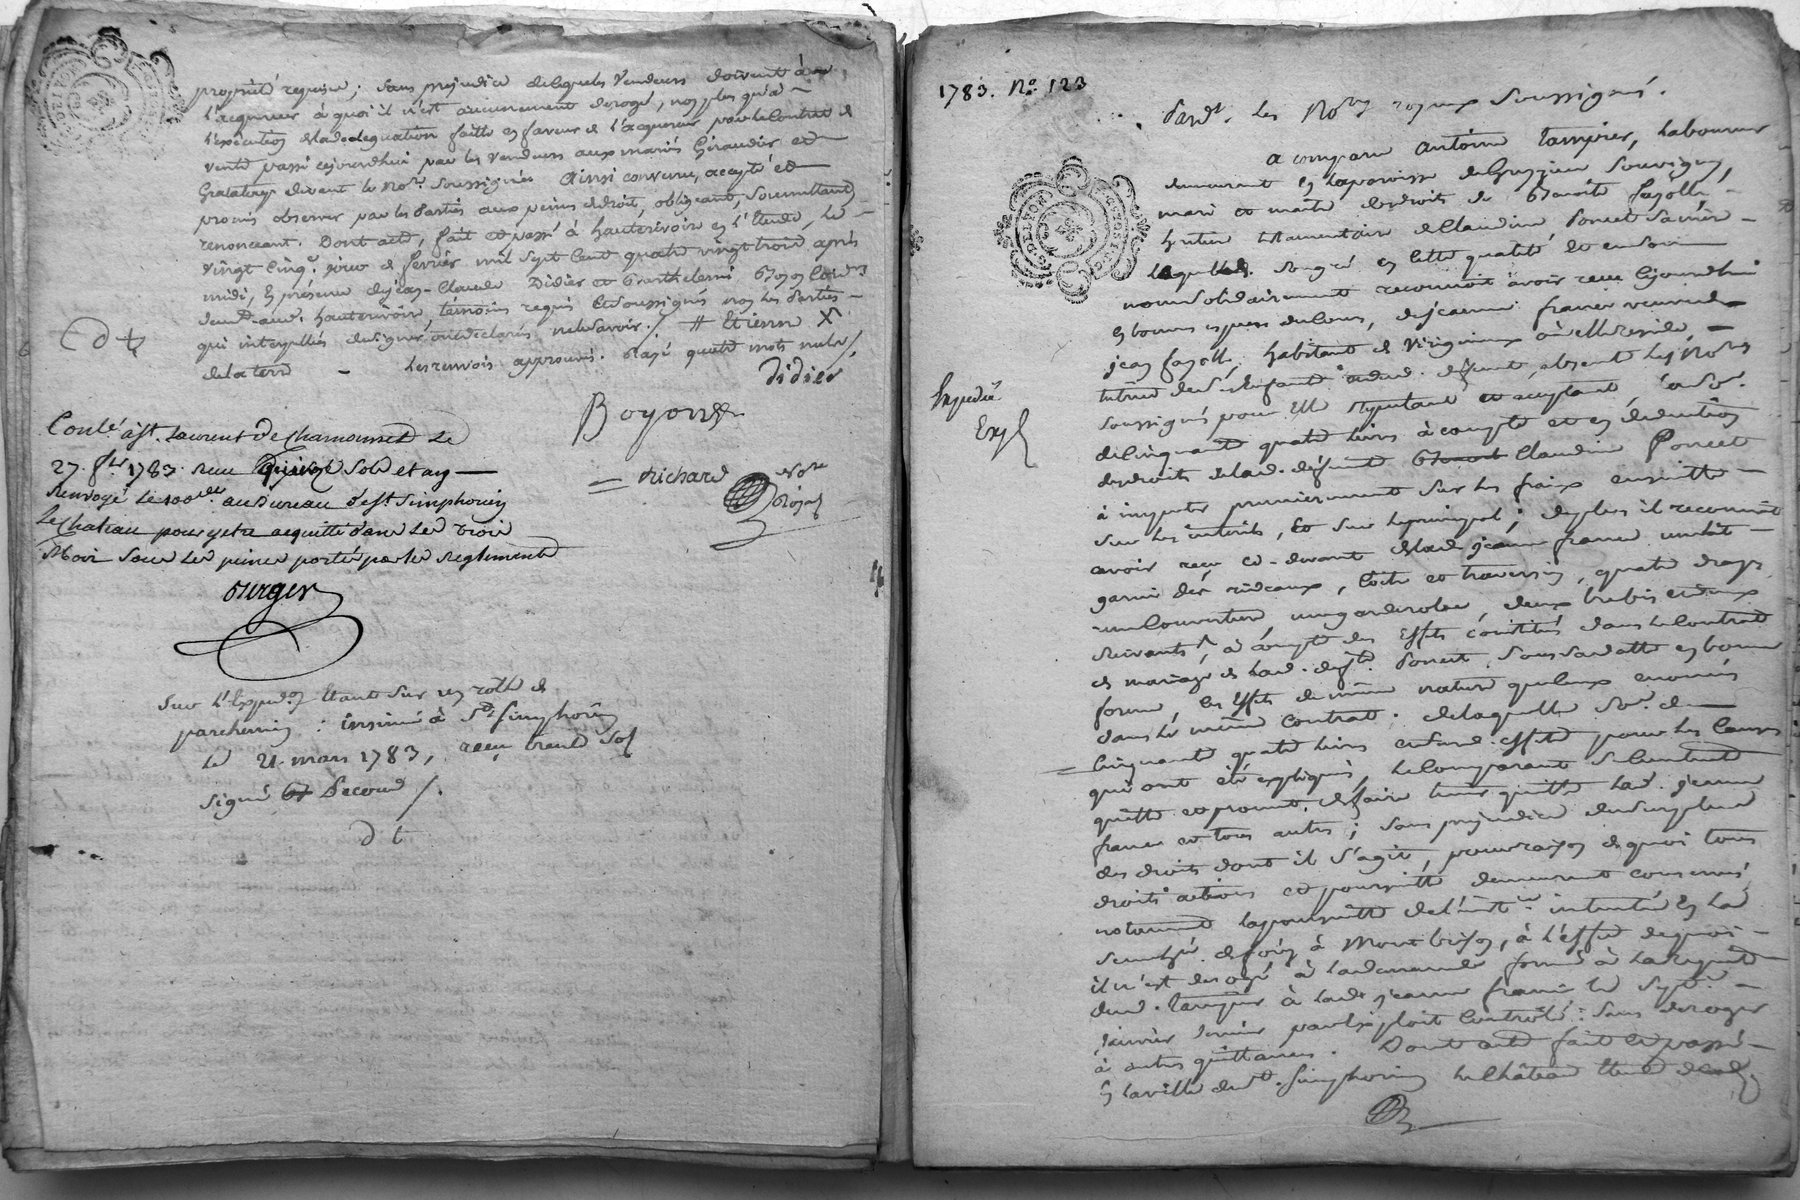 propriété requise, sans prejudice desquels vendeurs doivent à
l'acquereur à quoi il n'est aucunement derogé, non plus qu'à
l'execution de lad. delegation faitte en faveur de l'acquereur par le contrat de
vente passé cejourdhui par les vendeurs aux mariés Giraudier et
devant le No.re soussignés Ainsi convenu, accepté et
promis observer par les Parties aux peines de droit, obligeant, soumettant,
renonceant. Dont acte, fait et passé à hauterivoire en l'Etude, le
vingt cinq.e jour de fevrier mil sept cent quatre vingt trois après
midi, en présence de jean-Claude Didier et Barthelemi Boyon
dud. hauterivoire, témoins requis et soussignés non les Parties
qui interpellés de signer ont déclaré ne le savoir ./. # Etienne X
de la terre - Les renvois approuvés. rayé quatre mots nuls /.
didier
Boyon
Richard No.re Royal
Conlé à St. Laurent de Chamousset le
27. f.er 1783. reçu sols et ay
Renvoyé le 100.e au Bureau de St Simphorien
le Chateau pour y etre acquitté dans les trois
Mois sous les peines portées par les Reglements
ourger
Sur l'Exped.on Etant sur un rolle de
parchemin : insinué à St. Simphorien
le 21. mars 1783, reçu trente sols
signé Decour /.
d t
1783. No. 123
Pard.t les No.res royaux soussignés.
a comparu Antoine Tampier, laboureur
demeurant en la paroisse de Grezieu Souvigny,
mari et maitre des droits de Benoite fayolle,
hritiere testamentaire de Claudine Poncet sa mère
laquelle. de son gré en cette qualité et en son
nom solidairement reconnoit avoir reçu cejourdhui
en bonnes especes du cours, de jeanne france veuve de
jean fayolle, habitant de Virigneux où elle reside,
tutrice de ses Enfants dud. defunt, absente les No.res
soussignés pour Elle stipulant et acceptant la so.e
de cinquante quatre livres à compte et en deduction
des droits de lad. défunte Claudine Poncet
à imputer premierement sur les fraix ensuitte
sur les intérêts, et sur le principal; de plus il reconnoit
avoir reçu ci-devant de lad. jeanne france un lit
garni de rideaux, coite et traversin, quatre draps,
une couverture, une garderobe, deux brebis et deux
suivants, à compte des Effets constitués dans le contrat
de mariage de lad. def.te Poncet, sous sa datte en bonne
forme, les Effets de même nature que ceux enoncés
dans le même contrat. de laquelle So.e de
Cinquante quatre livres et susd. effets pour les causes
qui ont été expliqués, le comparant se contente
quitte et promet de faire tenir quitte lad. jeanne
france et tous autres; sans prejudice du surplus
des droits dont il s'agit, pour raison de quoi tous
droits actions et poursuitte demeurent conservés,
notamment la poursuitte de l'inst.ce intentée en la
Senechée de forez à Montbrison, à l'effet de quoi
il n'est derogé à la demande formée à la requête
dud. Tampier à lad. jeanne france le sept.e
janvier dernier par Exploit Controllé; sans deroger
à autres quittances. Dont acte fait et passé
En la ville de St. Simphorien le Château Etude de
Expedié
Exp